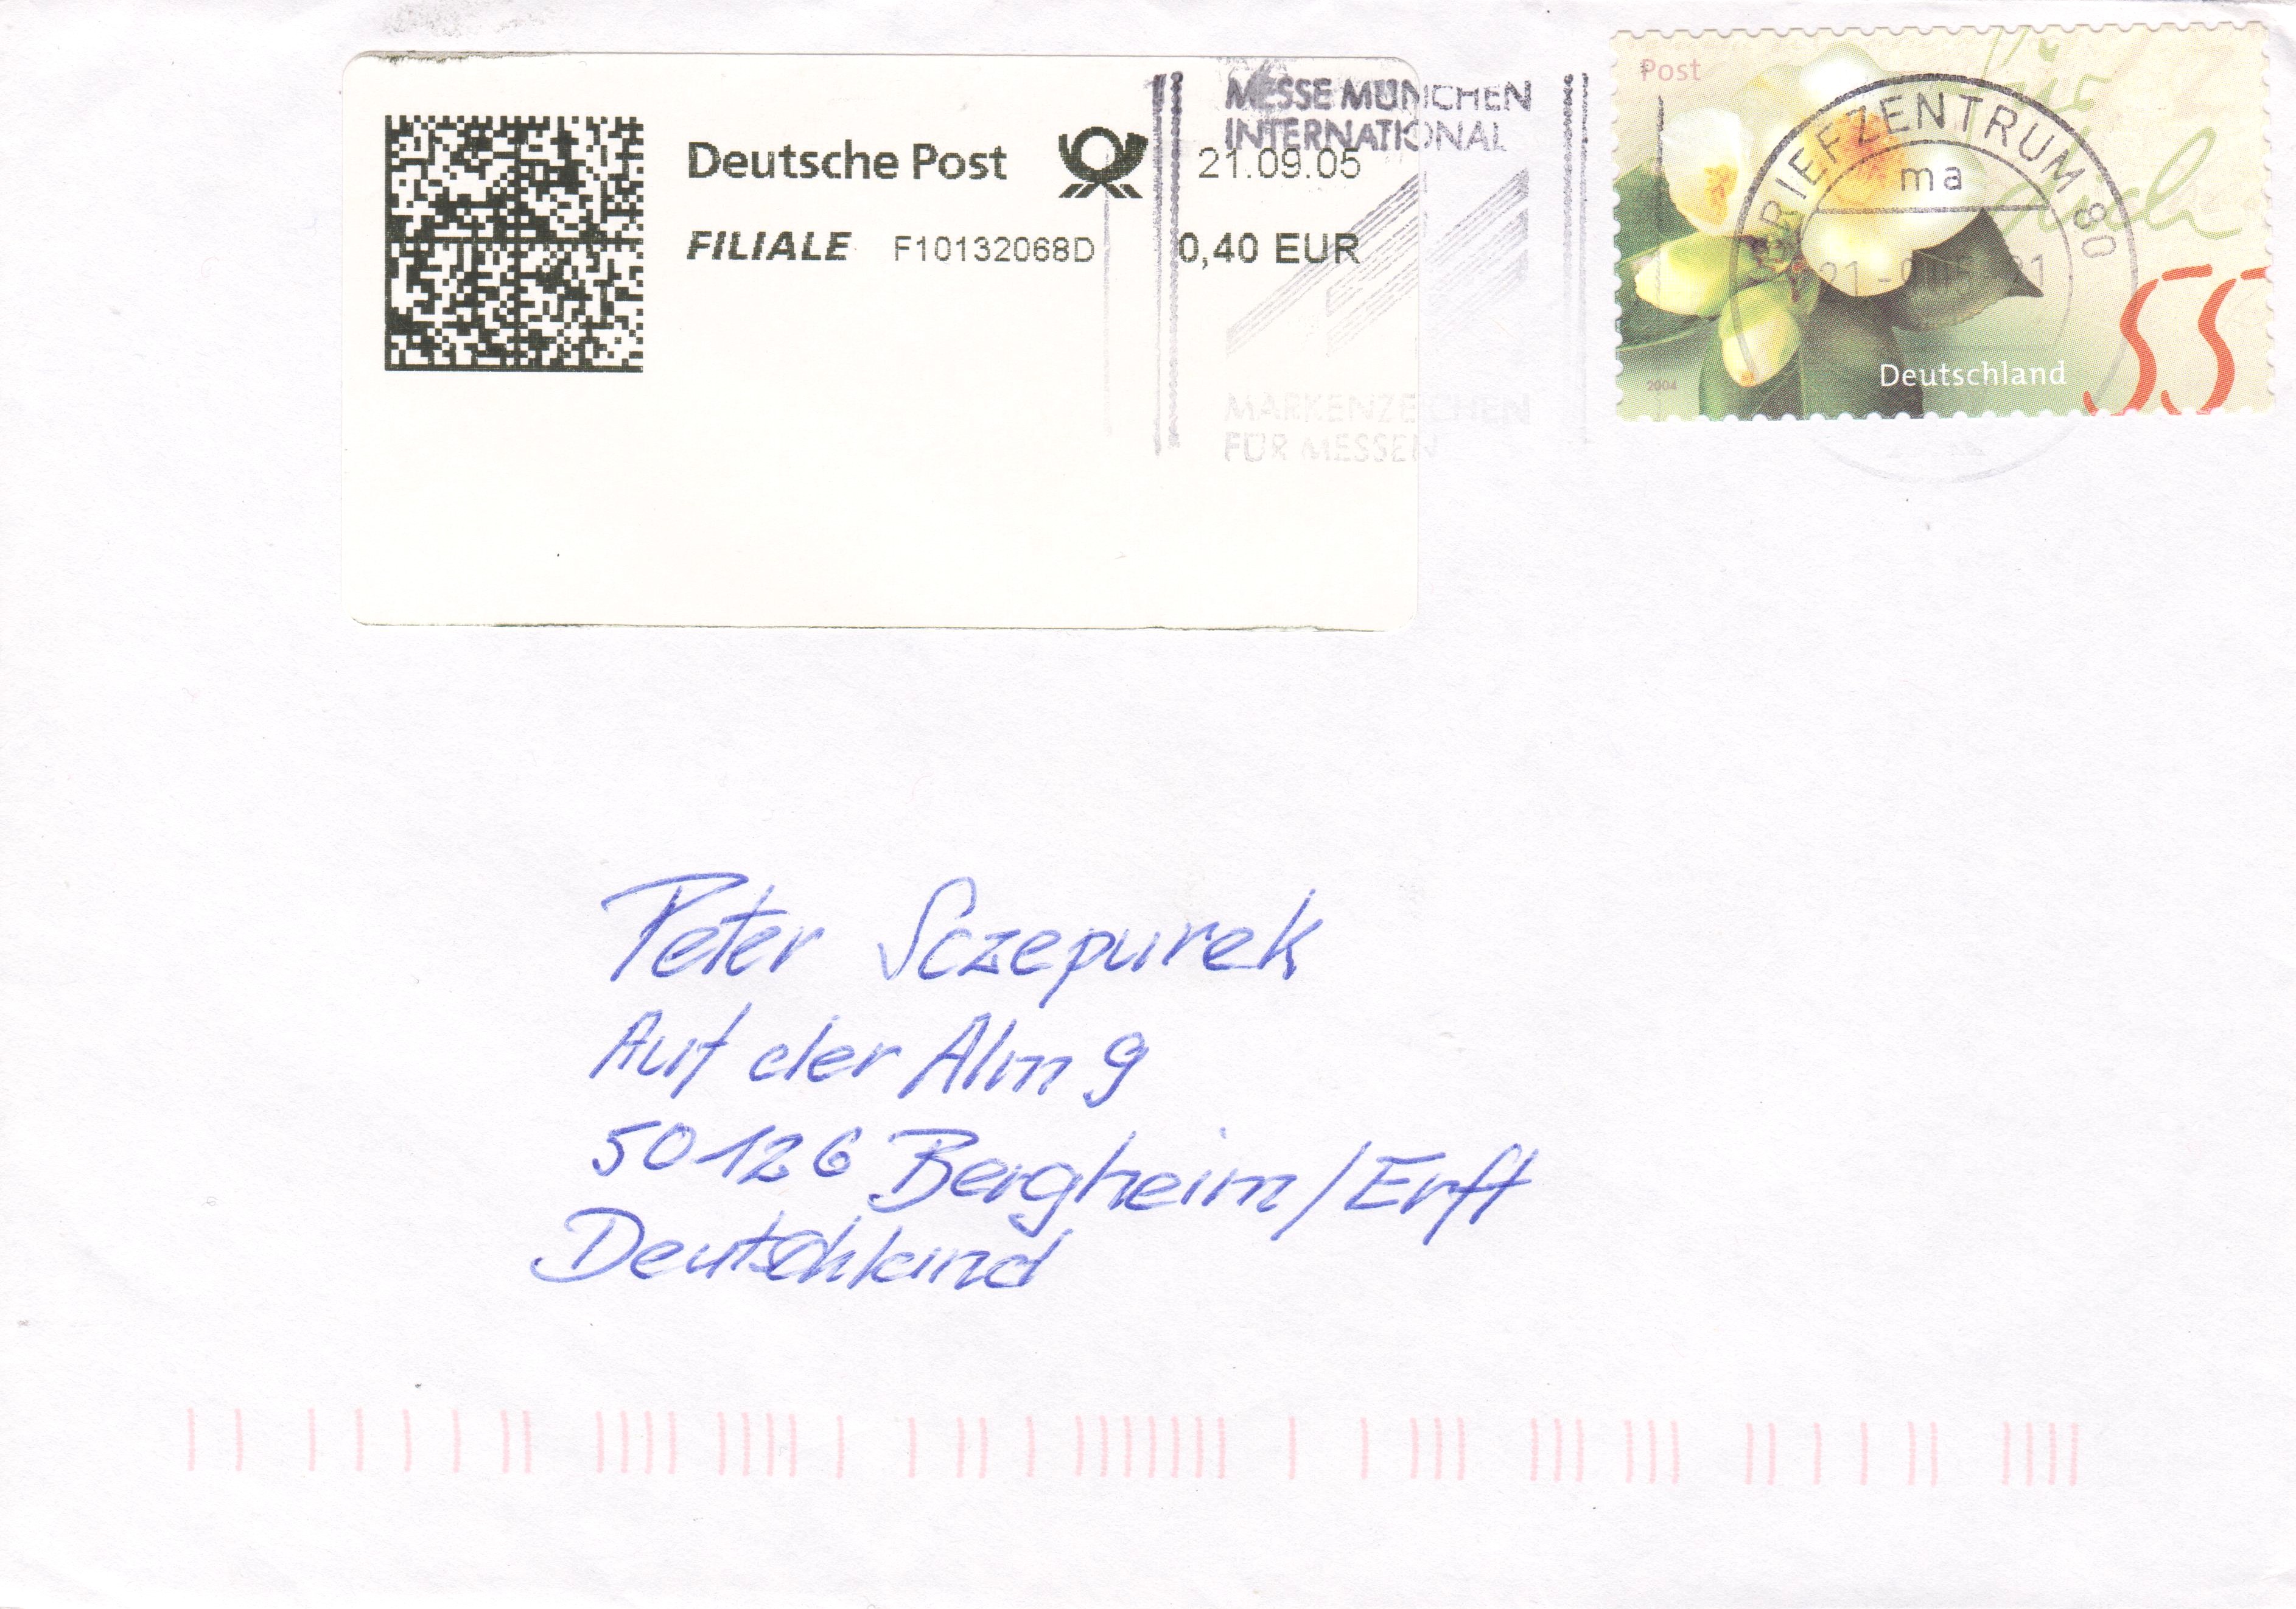 Deutsche Post
21.09.05
FILIALE F10132068D
0,40 EUR
MESSE MÜNCHEN
INTERNATIONAL
MARKENZEICHEN
FÜR MESSEN
Post
für
dich
BRIEFZENTRUM 80
ma
2004
Deutschland
55
Peter Sczepurek
Auf der Alm 9
50126 Bergheim/Erft
Deutschland